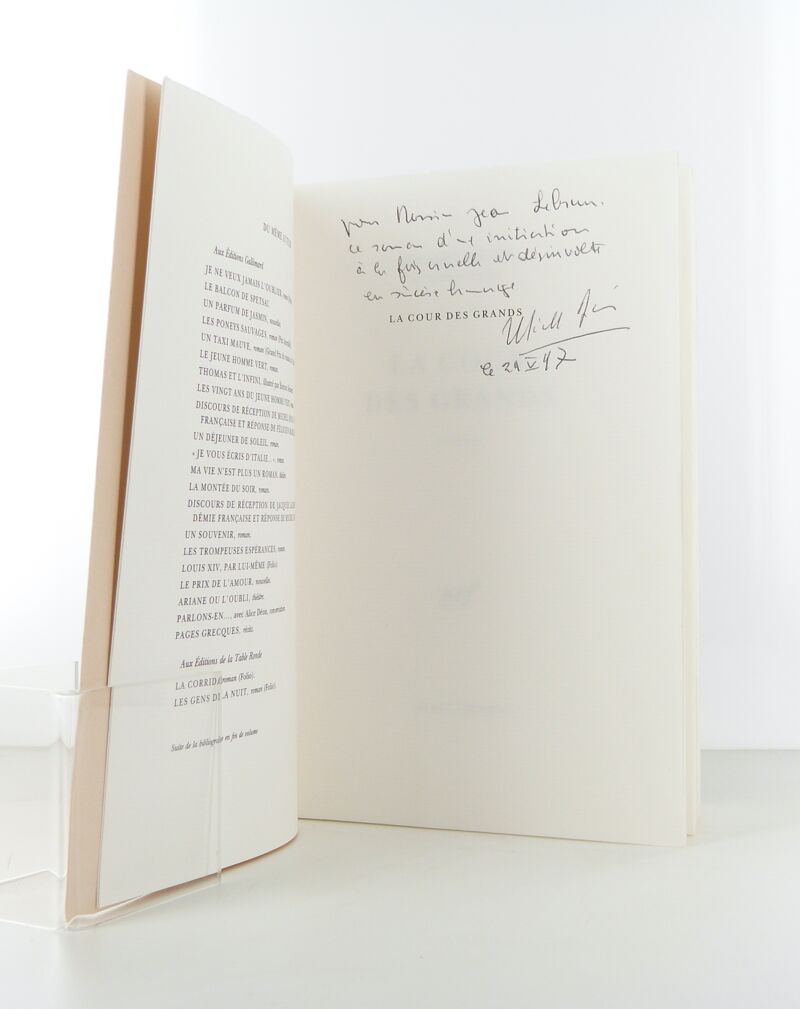 DU MÊME AUTEUR
Aux Éditions Gallimard
JE NE VEUX JAMAIS L'OUBLIER, roman
LE BALCON DE SPETSAI.
UN PARFUM DE JASMIN, nouvelles.
LES PONEYS SAUVAGES, roman (Prix
UN TAXI MAUVE, roman (Grand Prix
LE JEUNE HOMME VERT, roman.
THOMAS ET L'INFINI, illustré par
LES VINGT ANS DU JEUNE HOMME VERT,
DISCOURS DE RÉCEPTION DE MICHEL
FRANÇAISE ET RÉPONSE DE FÉLICIEN
UN DÉJEUNER DE SOLEIL, roman.
« JE VOUS ÉCRIS D'ITALIE... », roman.
MA VIE N'EST PLUS UN ROMAN, théâtre.
LA MONTÉE DU SOIR, roman.
DISCOURS DE RÉCEPTION DE JACQUES
DÉMIE FRANÇAISE ET RÉPONSE DE
UN SOUVENIR, roman.
LES TROMPEUSES ESPÉRANCES, roman.
LOUIS XIV, PAR LUI-MÊME (Folio).
LE PRIX DE L'AMOUR, nouvelles.
ARIANE OU L'OUBLI, théâtre.
PARLONS-EN..., avec Alice Déon, conversation.
PAGES GRECQUES, récits.
Aux Éditions de la Table Ronde
LA CORRIDA, roman (Folio).
LES GENS DE LA NUIT, roman (Folio).
Suite de la bibliographie en fin de volume
pour Monsieur Jean Lebrun,
ce roman d'une initiation
à la fois cruelle et désinvolte
en sincère hommage
LA COUR DES GRANDS
Michel Déon
le 29 V 97
LA COUR
DES GRANDS
nrf